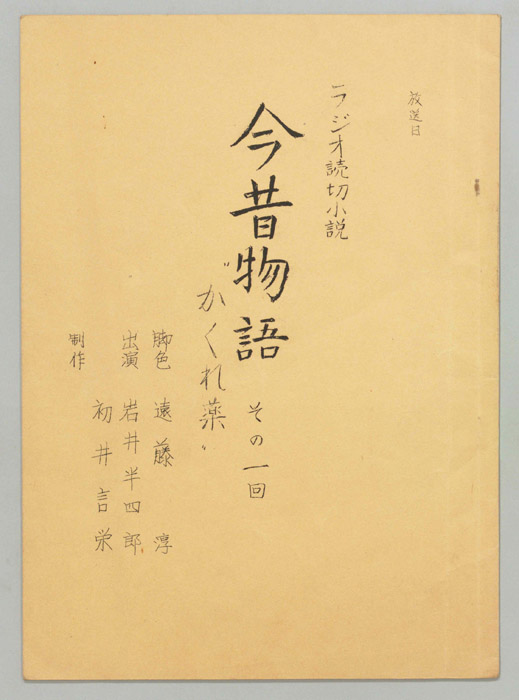 放送日
ラジオ読切小説
今昔物語 その一回
“かくれ薬”
脚色 遠藤 淳
出演 岩井半四郎
初井言栄
制作